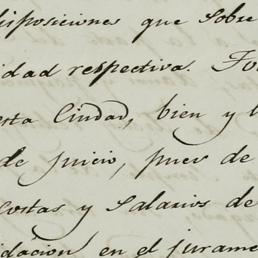 disposiciones que sobre
idad respectiva. Fo
esta Ciudad, bien y l
de juicio, pues de
costas y salarios de
idacion en el jurame